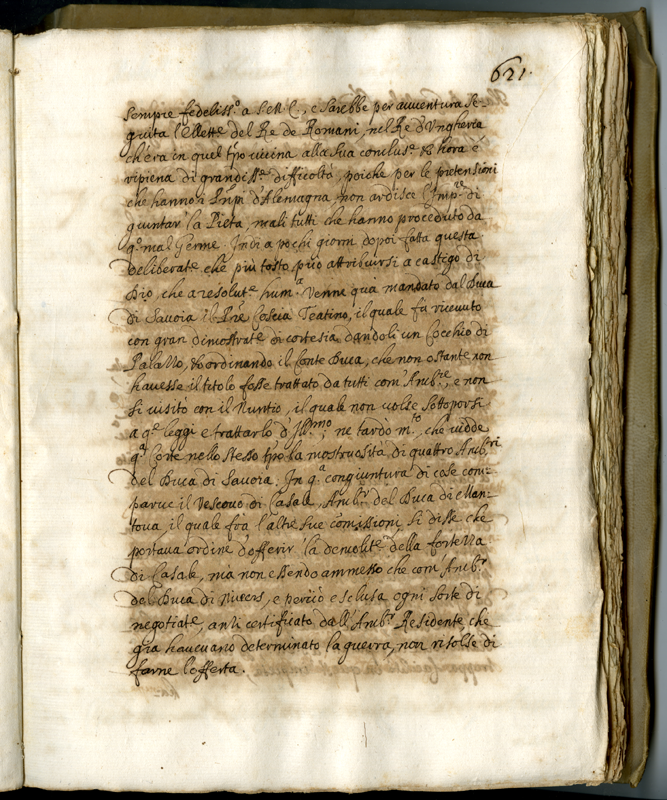 621.
sempre fedeliss.º a S. M. C., e sarebbe per avventura se-
guita l'Elett.e del Re de Romani, nel Re d'Ungheria
ch'era in quel tpo vicina alla sua conclus.e & hora e
ripiena di grandiss.e difficoltà, poiche per le pretensioni
che hanno i Pnpi d'Alemagna non ardisce l'Imp.re di
giuntar la Dieta, mali tutti che hanno proceduto da
q.º mal Germe. Indi a pochi giorni dopoi fatta questa
deliberat.e che più tosto può attribuirsi a castigo di
Dio, che a resolut.e hum.a Venne quà mandato dal Duca
di Savoia il Pre Coscia Teatino, il quale fù ricevuto
con gran dimostrat.e di cortesia dandoli un Cocchio di
Palazzo, & ordinando il Conte Duca, che non ostante non
havesse il titolo fosse trattato da tutti com'Amb.re, e non
si visitò con il Nuntio, il quale non volse sottoporsi
a q.e leggi e trattarlo d'Ill.mo; ne tardo m.to, che vidde
q.a Corte nello stesso tpo la mostruosità di quattro Amb.ri
del Duca di Savoia: In q.a congiuntura di cose com-
parve il Vescovo di Casale, Amb.r del Duca di Man-
tova, il quale frà l'altre sue comissioni si disse che
portava ordine d'offerir la demolit.e della fortezza
di Casale, mà non essendo ammesso che com'Amb.r
del Duca di Nivers, e perciò esclusa ogni sorte di
negotiat.e, anzi certificato dall'Amb.r Residente che
già havevano determinato la guerra, non risolse di
farne l'offerta.